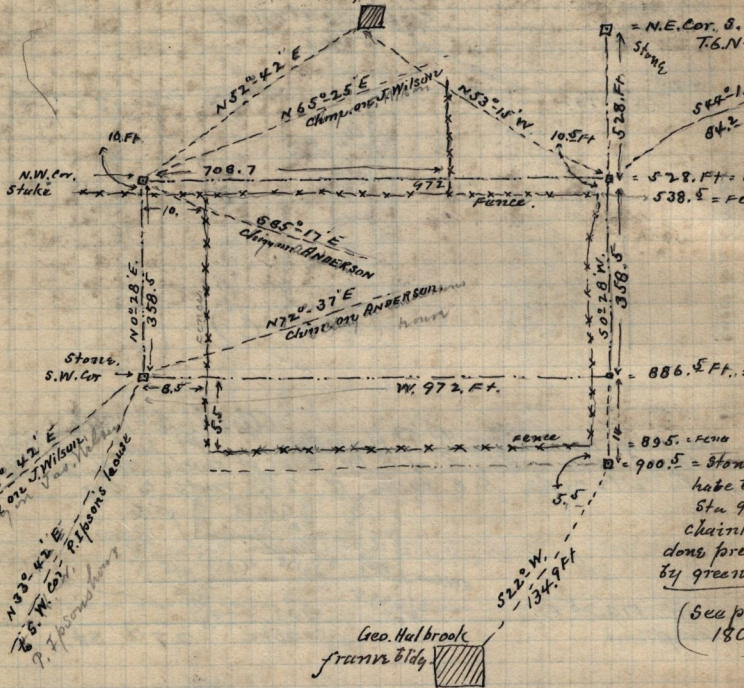 = N.E. Cor. S.
T.6.N
Stone
N52°-42' E
N65°-25' E
Chim. on J. Wilson
N53°-15' W
528. Ft
544°-1
84.2
10. Ft
10.5 Ft
N.W. Cor.
Stake
708.7
972
= 528. Ft =
538.5 = Fe
Fence.
10.
S65°-17' E
Chim. on ANDERSON
N0°28' E.
358.5
N72°-37' E
Chim. on ANDERSON.
S0°28' W.
358.5
Stone.
S.W. Cor
8.5
W. 972. Ft.
= 886.5 Ft. =
5.5
14
Fence
= 895. = Fence
= 900.5 = Stone
5.5
Sta 9
chaini
done pre
by green
° 42' E
on J. Wilson
N33°-42' E
S.W. Cor. P. Ipsons house
P. Ipsons hous
S22°-W.
134.9 Ft
(See p
180
Geo. Halbrook
frame bldg.